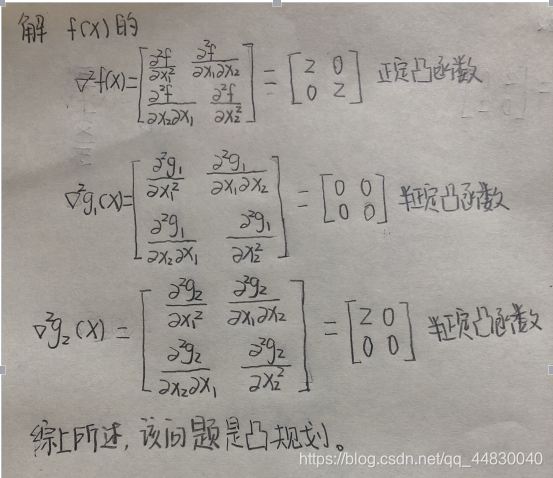 解 f(x)的
∇²f(x)=[∂²f/∂x₁² ∂²f/∂x₁∂x₂; ∂²f/∂x₂∂x₁ ∂²f/∂x₂²] = [2 0; 0 2] 正定凸函数
∇²g₁(x)=[∂²g₁/∂x₁² ∂²g₁/∂x₁∂x₂; ∂²g₁/∂x₂∂x₁ ∂²g₁/∂x₂²] = [0 0; 0 0] 半正定凸函数
∇²g₂(x) = [∂²g₂/∂x₁² ∂²g₂/∂x₁∂x₂; ∂²g₂/∂x₂∂x₁ ∂²g₂/∂x₂²] = [2 0; 0 0] 半正定凸函数
综上所述,该问题是凸规划。
https://blog.csdn.net/qq_44830040